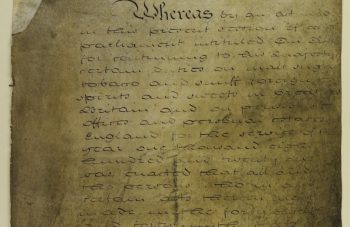 Whereas by an act
in this present session of
parliament intituled an act
for continuing to his majesty
certain duties on malt sugar
tobacco and snuff foreign
spirits and sweets in Great
Britain and on pensions
offices and personal estates
England for the service of the
year one thousand eight
hundred and twenty
was enacted that all and
the persons who in a
certain acts
made in the forty